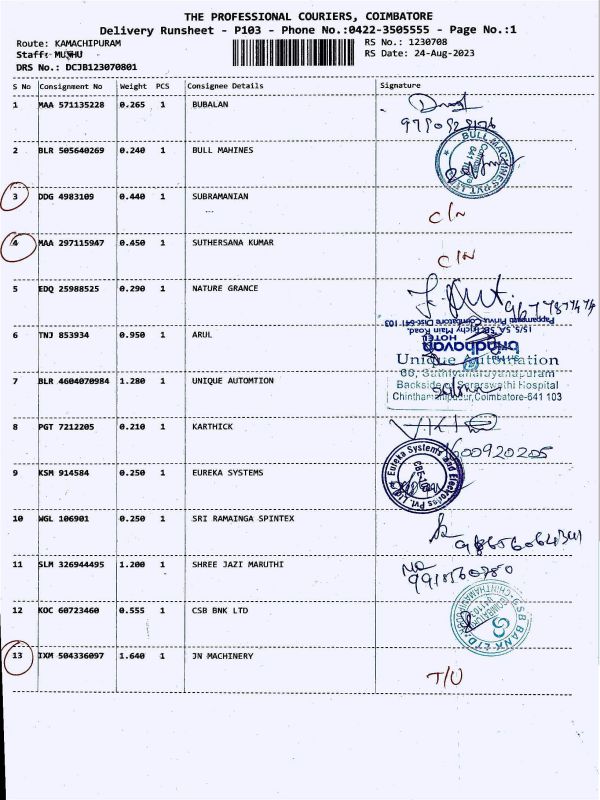 THE PROFESSIONAL COURIERS, COIMBATORE
Delivery Runsheet - P103 - Phone No.:0422-3505555 - Page No.:1
Route: KAMACHIPURAM RS No.: 1230708
Staff: MUSHU RS Date: 24-Aug-2023
DRS No.: DCJB123070801
S No Consignment No Weight PCS Consignee Details Signature
1 MAA 571135228 0.265 1 BUBALAN
2 BLR 505640269 0.240 1 BULL MAHINES
BULL MACHINES PVT LTD
3 DDG 4983109 0.440 1 SUBRAMANIAN C/N
4 MAA 297115947 0.450 1 SUTHERSANA KUMAR C/N
5 EDQ 25988525 0.290 1 NATURE GRANCE
6 TNJ 853934 0.950 1 ARUL
HOTEL
brindhavan
Unique Automation
7 BLR 4604070984 1.280 1 UNIQUE AUTOMTION
Backside of Sararswathi Hospital
Chinthamanipudur,Coimbatore-641 103
8 PGT 7212205 0.210 1 KARTHICK
9 KSM 914584 0.250 1 EUREKA SYSTEMS
Eureka Systems and Electrodes Pvt. Ltd
10 WGL 106901 0.250 1 SRI RAMAINGA SPINTEX
11 SLM 326944495 1.200 1 SHREE JAZI MARUTHI
12 KOC 60723460 0.555 1 CSB BNK LTD
CSB BANK LTD
13 IXM 504336097 1.640 1 JN MACHINERY T/U